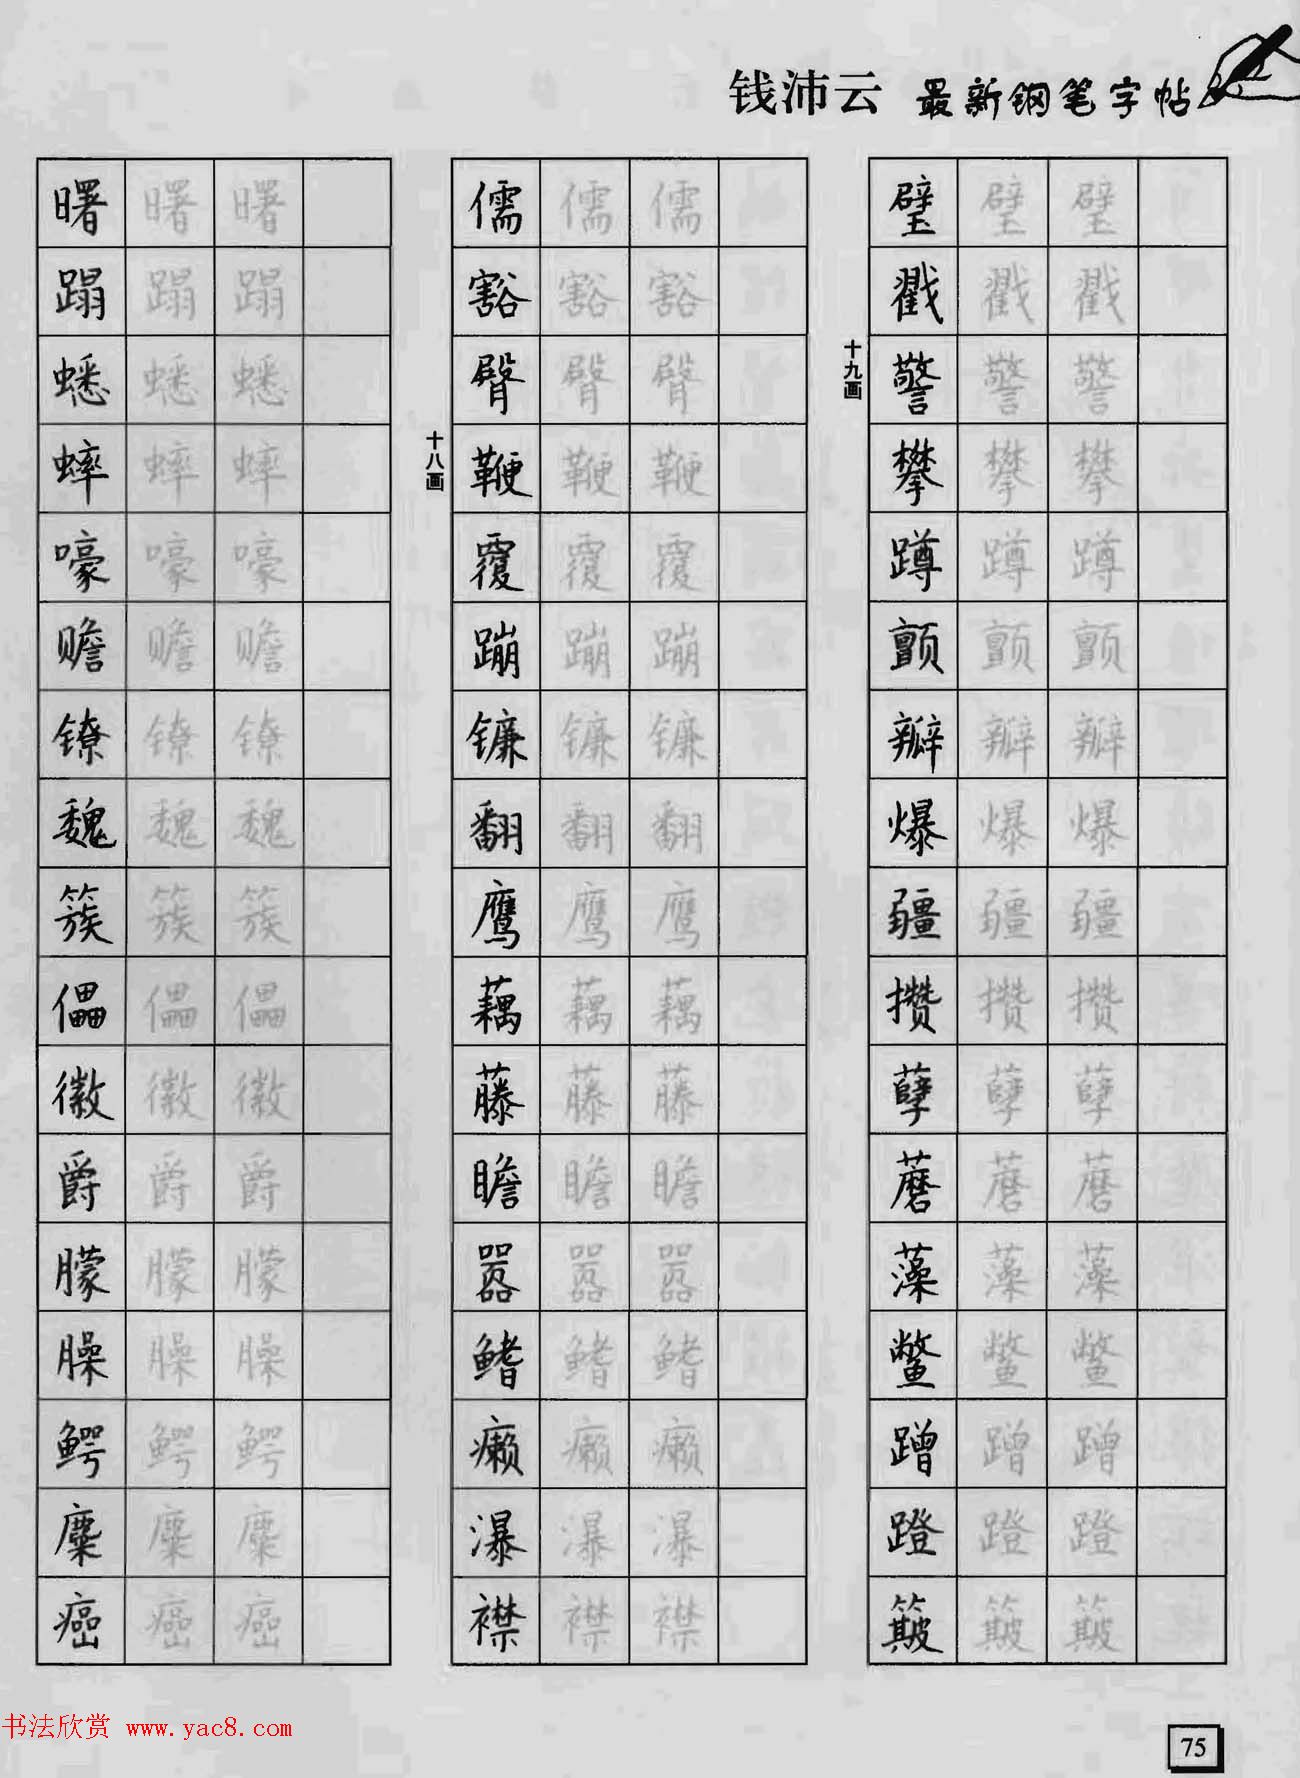 钱沛云 最新钢笔字帖
曙 曙 曙
蹋 蹋 蹋
蟋 蟋 蟋
蟀 蟀 蟀
嚎 嚎 嚎
赡 赡 赡
镣 镣 镣
魏 魏 魏
簇 簇 簇
儡 儡 儡
徽 徽 徽
爵 爵 爵
朦 朦 朦
臊 臊 臊
鳄 鳄 鳄
糜 糜 糜
癌 癌 癌
儒 儒 儒
豁 豁 豁
臀 臀 臀
十八画
鞭 鞭 鞭
覆 覆 覆
蹦 蹦 蹦
镰 镰 镰
翻 翻 翻
鹰 鹰 鹰
藕 藕 藕
藤 藤 藤
瞻 瞻 瞻
嚣 嚣 嚣
鳍 鳍 鳍
癞 癞 癞
瀑 瀑 瀑
襟 襟 襟
璧 璧 璧
戳 戳 戳
十九画
警 警 警
攀 攀 攀
蹲 蹲 蹲
颤 颤 颤
瓣 瓣 瓣
爆 爆 爆
疆 疆 疆
攒 攒 攒
孽 孽 孽
蘑 蘑 蘑
藻 藻 藻
鳖 鳖 鳖
蹭 蹭 蹭
蹬 蹬 蹬
簸 簸 簸
书法欣赏 www.yac8.com
75